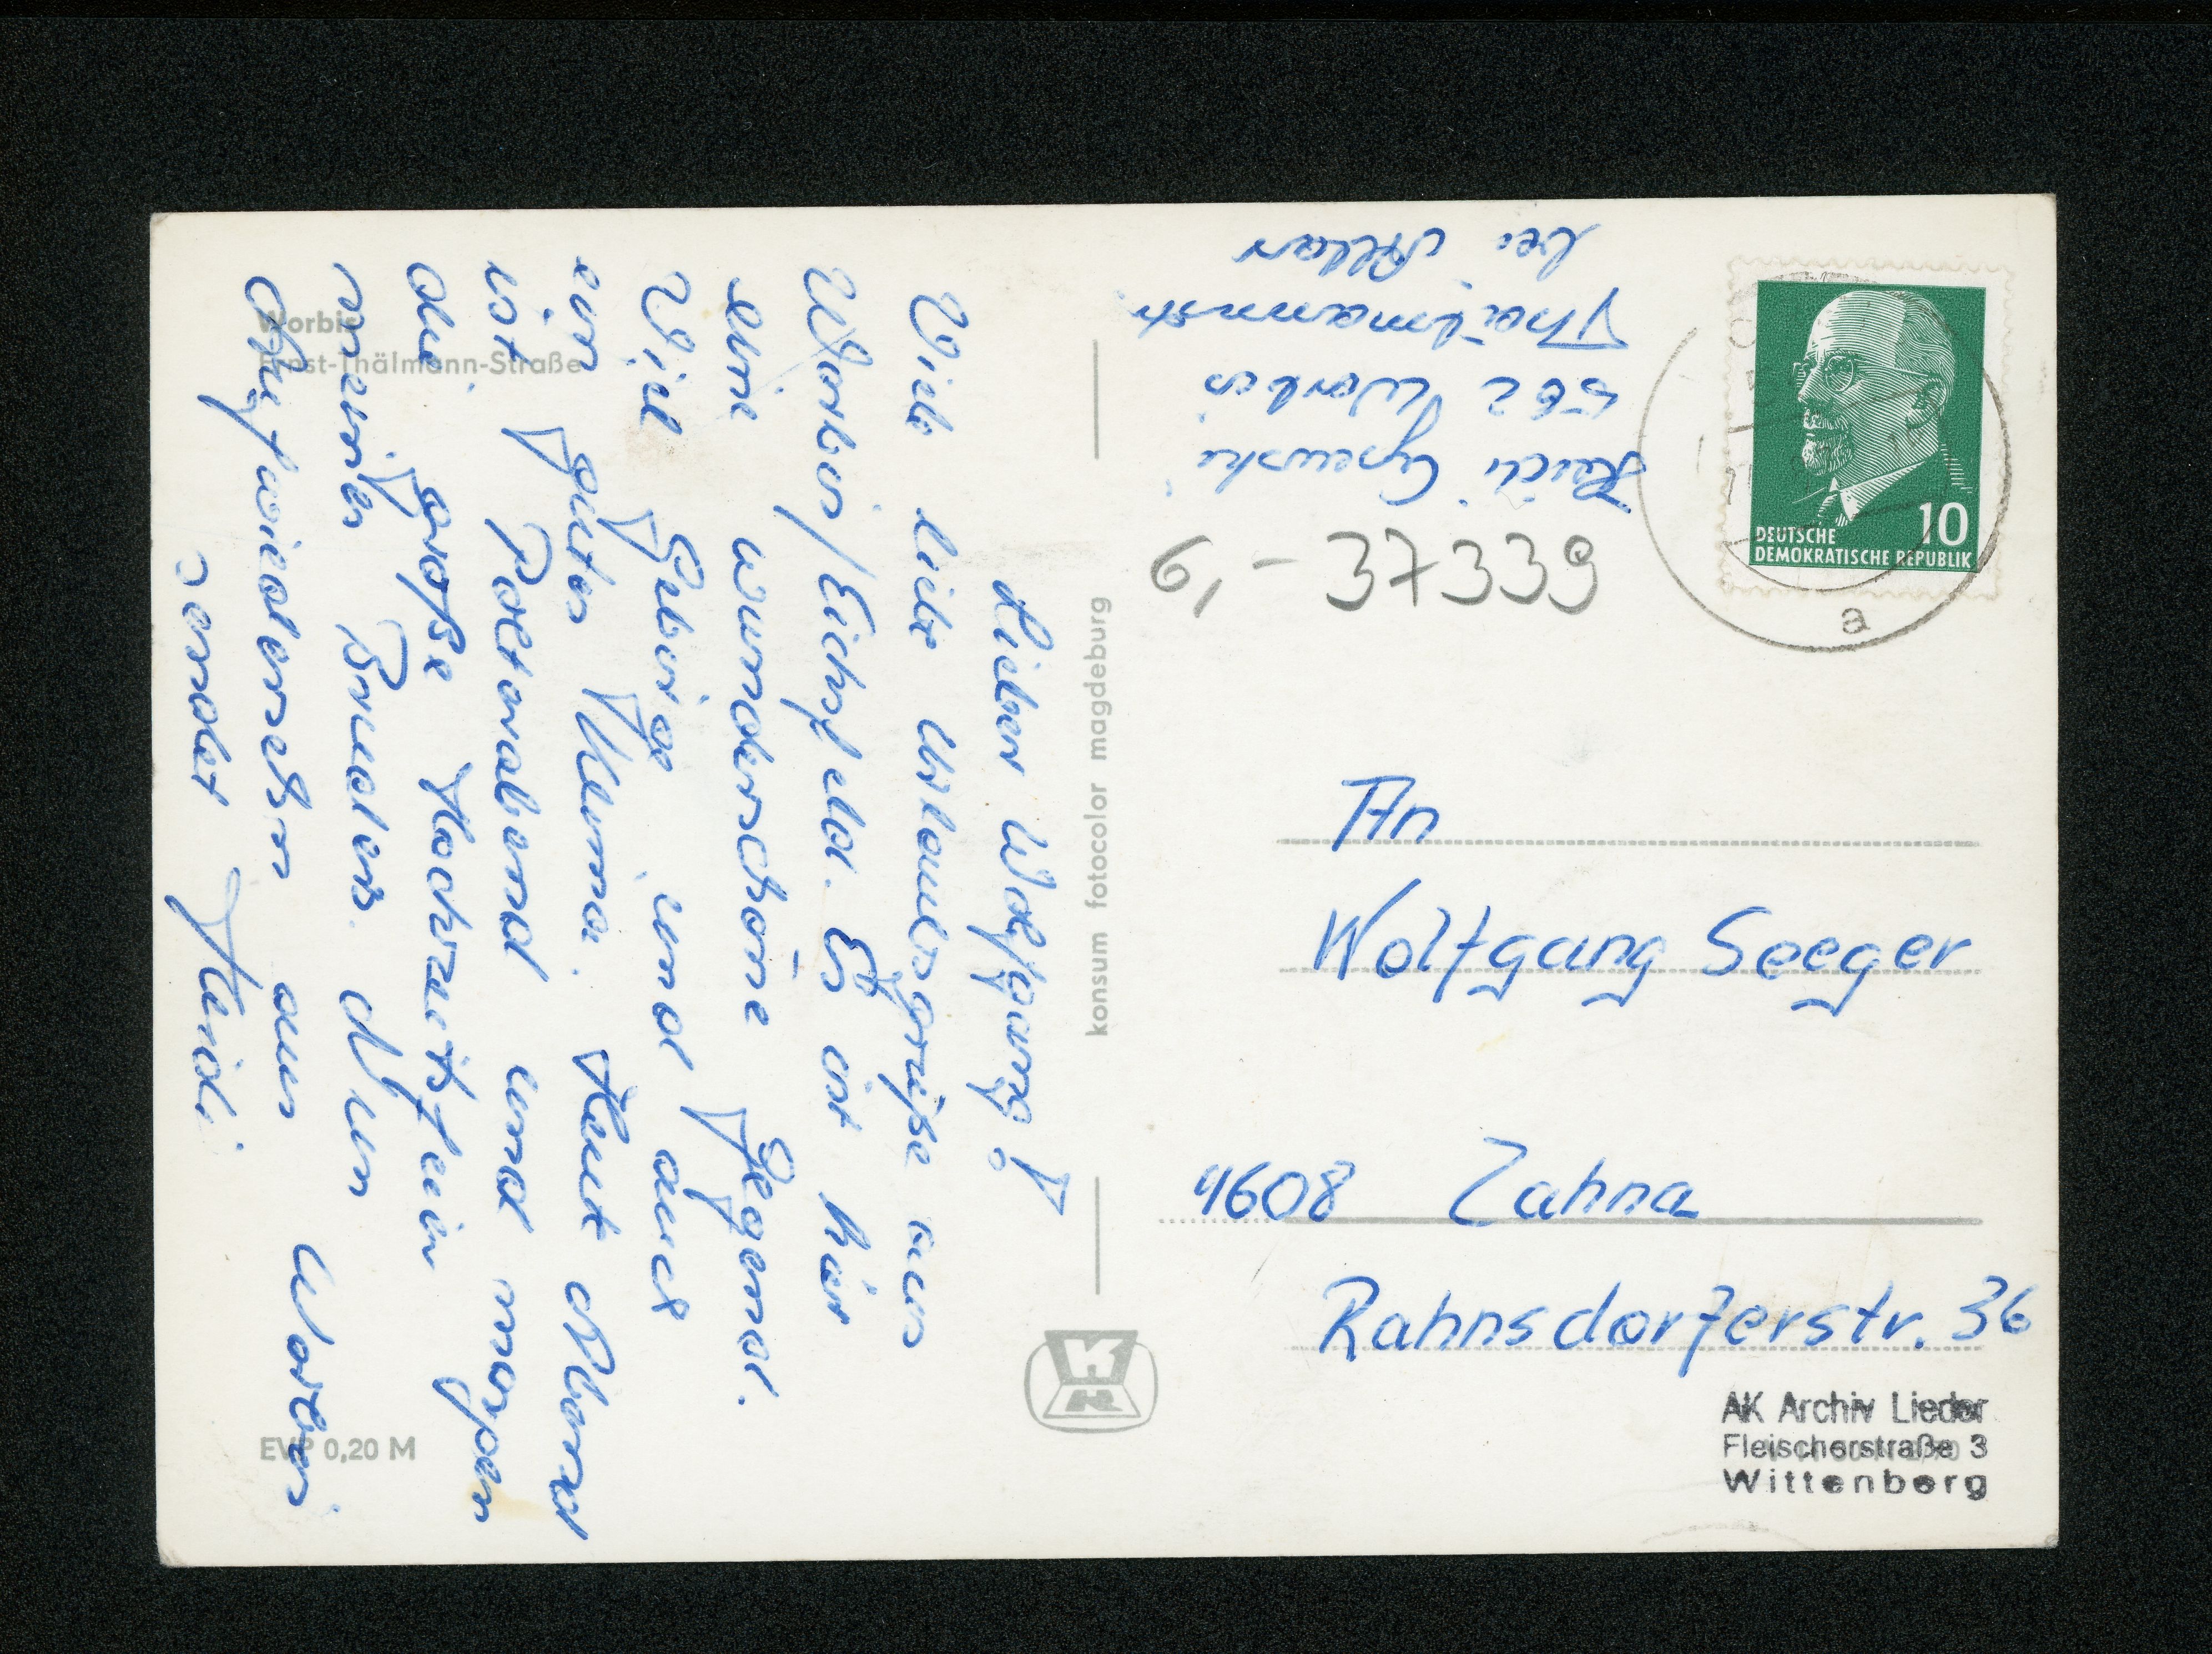 Worbis
Ernst-Thälmann-Straße
Lieber Wolfgang!
Viele liebe Urlaubsgrüße aus
Worbis/Eichsfeld. Es ist hier
eine wunderschöne Gegend.
Viel Gebirge und auch
ein gutes Klima. Heut Abend
ist Polterabend und morgen
die große Hochzeitsfeier
meines Bruders. Nun
Auf wiedersehn aus Worbis
sendet Heidi
EVP 0,20 M
konsum fotocolor magdeburg
Heidi
562 Worbis
Thälmannstr.
bei
6,- 37339
DEUTSCHE
DEMOKRATISCHE REPUBLIK
10
a
An
Wolfgang Seeger
4608 Zahna
Rahnsdorferstr. 36
AK Archiv Lieder
Fleischerstraße 3
Wittenberg